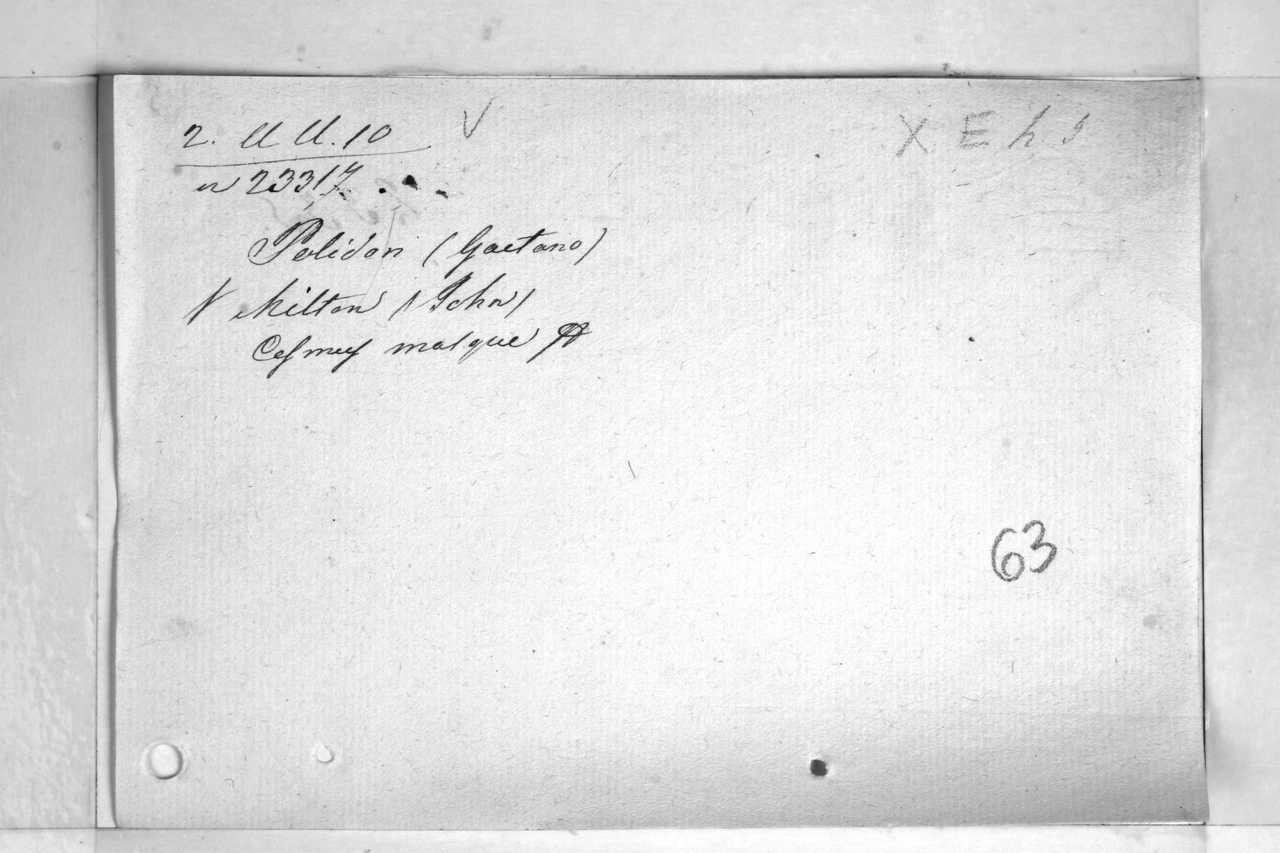 2. U U. 10 V
n 23317
X E h s
Polidori (Gaetano)
V Milton (John)
masque
63